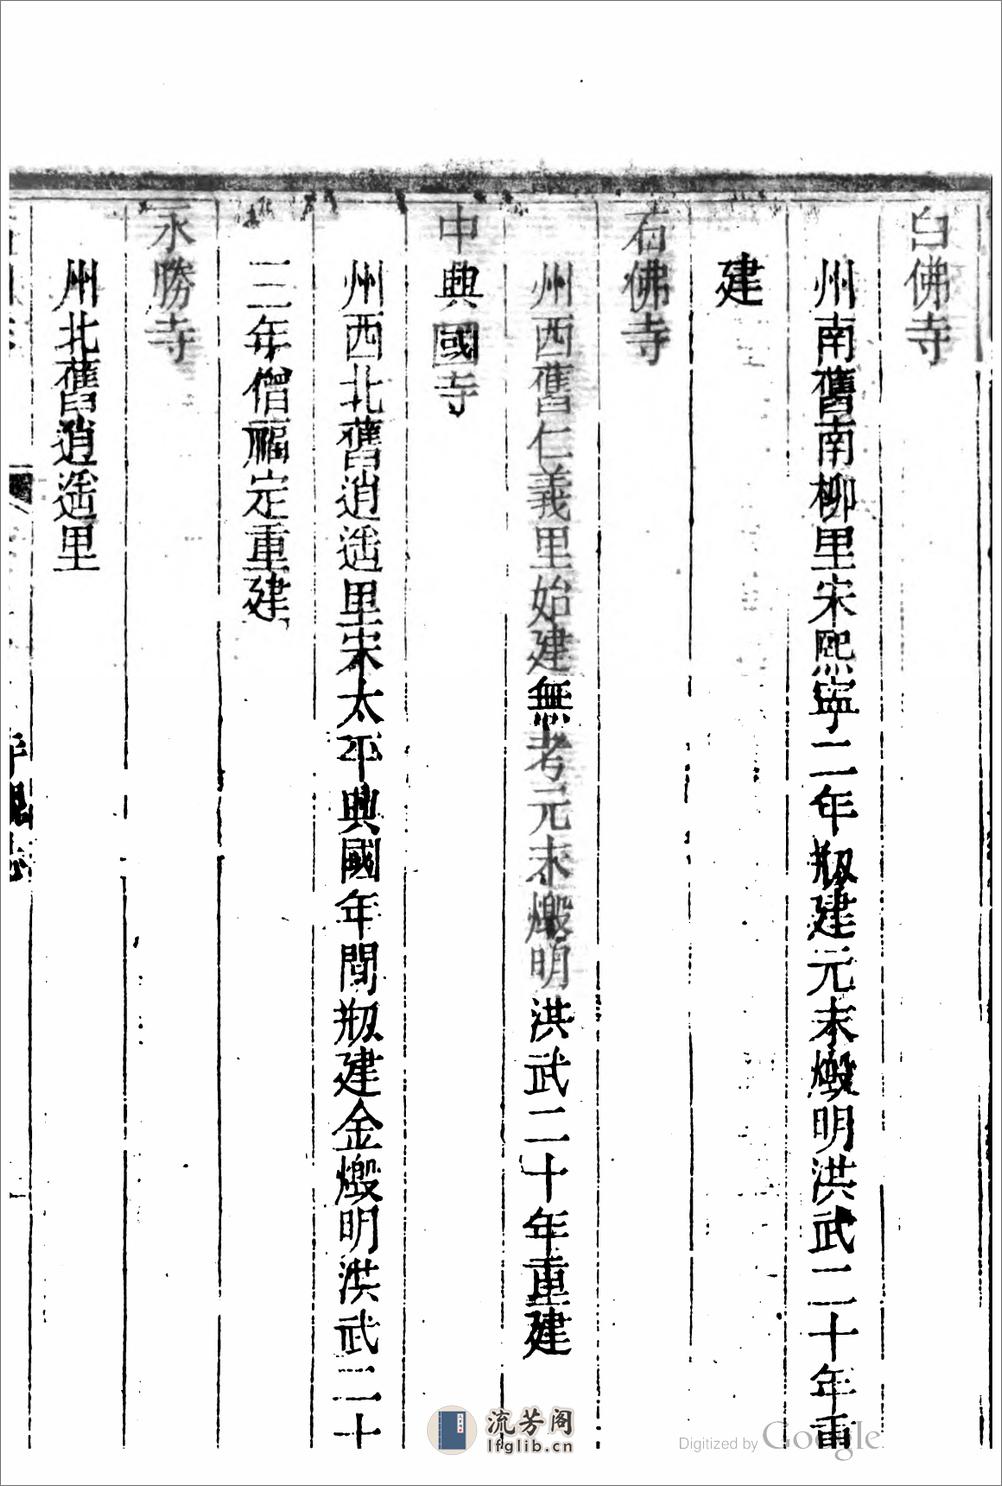 白佛寺
州南舊南柳里宋熙寧二年剏建元末燬明洪武二十年重
建
石佛寺
州西舊仁義里始建無考元末燬明洪武二十年重建
中興國寺
州西北舊逍遥里宋太平興國年間剏建金燬明洪武二十
三年僧福定重建
永勝寺
州北舊逍遥里
流芳阁
lfglib.cn
Digitized by Google